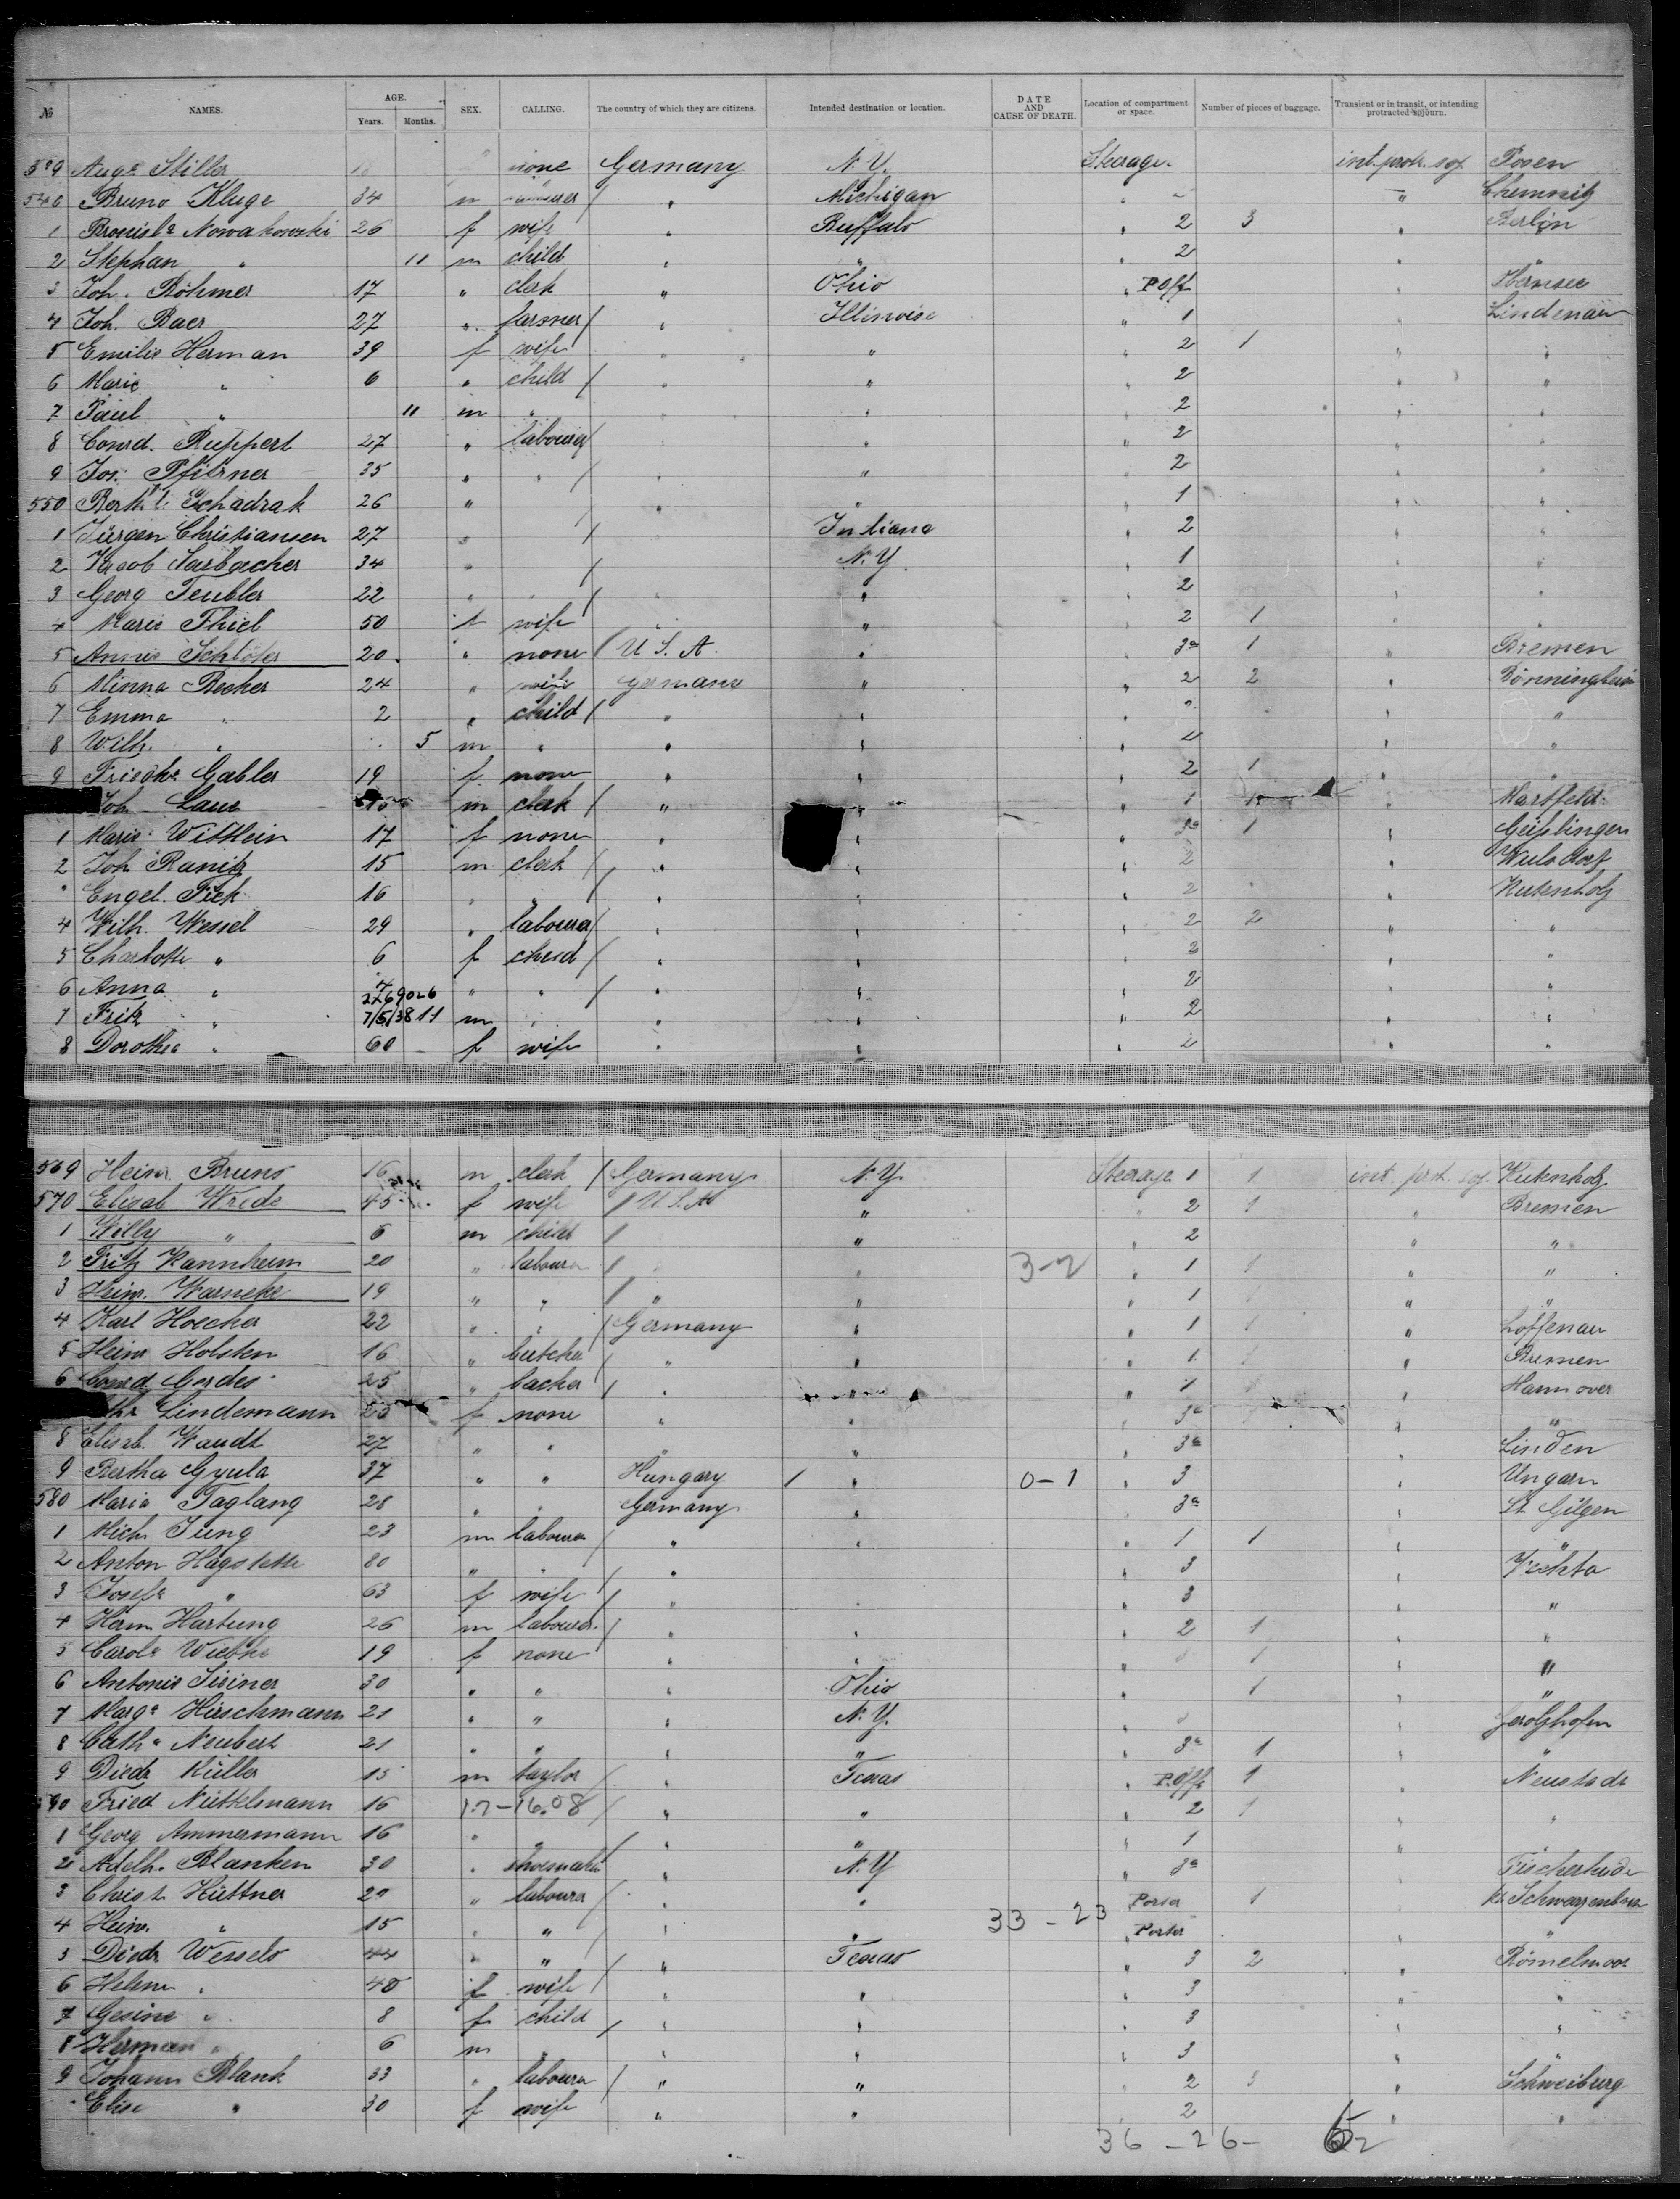 № NAMES. AGE. Years. Months. SEX. CALLING. The country of which they are citizens. Intended destination or location. DATE AND CAUSE OF DEATH. Location of compartment or space. Number of pieces of baggage. Transient or in transit, or intending protracted sojourn.
539 Auge Stiller none Germany N.Y. Steerage int. prot. soj. Posen
540 Bruno Kluge 34 m / " Michigan " " " Chemnitz
1 Bronisla Nowakowski 26 f wife " Buffalo " 2 3 " Berlin
2 Stephan " 11 m child " " " 2 " "
3 Joh. Böhmer 17 " clerk " Ohio " P.Off. "
4 Joh. Baer 27 " farmer / " Illinoise " 1 Lindenau
5 Emilie Herman 39 f wife " " " 2 1 " "
6 Marie " 6 " child / " " " 2 " "
7 Paul " 11 m " " " 2 " "
8 Conrd. Ruppert 27 " labourer / " " 2 " "
9 Jos. Pfitzner 35 " " / " " " 2 " "
550 26 " " " " 1 " "
1 Jürgen Christiansen 27 " / Indiana " 2 " "
2 Jacob Sarbacher 34 " / N.Y. " 1 " "
3 Georg Teubler 22 " " / " " " 2 " "
4 Marie Thiel 50 f wife " " " 2 1 " "
5 Annie 20 " none / U.S.A. " " 3a 1 " Bremen
6 Minna Becker 24 " wife Germany " " 2 2 " Bönningheim
7 Emma " 2 " child / " " " 2 " "
8 Wilh. " 5 m " " " " " "
9 Friedke Gabler 19 f none " " " 2 1 " "
Joh. Laue 15 m clerk / " " 1 1 " Martfeld
1 Marie Wittlein 17 f none " " " 3a 1 " Geislingen
2 Joh Ranitz 15 m clerk / " " " 2 " Wulsdorf
Engel. Fick 16 " " / " " " 2 " Kutenholz
4 Wilh. Wessel 29 " labourer / " " " 2 2 " "
5 Charlotte " 6 f child / " " " 2 " "
6 Anna " 4 " " / " " " 2 " "
2x69026
7 Fritz " 7/5/38 11 m " " " " 2 " "
8 Dorothea " 60 f wife " " " 2 " "
569 Heinr. Bruns 16 m clerk / Germany N.Y. Steerage 1 1 int. prot. soj. Kutenholz
570 Elisab Wrede 45 f wife / U.S.A " " 2 1 " Bremen
1 Willy " 6 m child / " " 2 " "
2 Fritz Mannheim 20 " labourer / " 3-2 " 1 1 " "
3 Heinr. Warneke 19 " " / " " " 1 " "
4 Karl Hoecker 22 " " / Germany " " 1 1 " Loffenau
5 Heinr Holsten 16 " butcher / " " " 1 " Bremen
6 Conrd Gerdes 25 " backer / " " " 1 " Hannover
Lindemann 25 f none " " " 3a " "
8 Elisab. Wandt 27 " " " " " 3a " Linden
9 Bertha Gyula 37 " " Hungary / " 0-1 " 3 " Ungarn
580 Maria Taglang 28 " " Germany " " 3a " St. Gilgen
1 Mich. Jung 23 m labourer / " " " 1 1 " "
2 Anton Hagstette 80 " " / " " 3 " Vechta
3 Josefe " 63 f wife / " " " 3 " "
4 Herm Hartung 26 m labourer / " " " 2 1 " "
5 Carole Wiebke 19 f none " " " 1 " "
6 Antonie 30 " " " Ohio " 1 " "
7 Marge Hirschmann 21 " " " N.Y. " " Gerolzhofen
8 Cathe Neubert 21 " " " " " 3a 1 " "
9 Diedr Müller 15 m taylor / " Texas " P.Off. 1 " Neustadt
590 Fried Nuttelmann 16 17-1608 / " " " 2 1 " "
1 Georg Ammermann 16 " " / " " " 1 " "
2 Adelh. Blanken 30 " shoemaker " N.Y " 3a " Fischerhude
3 Christ Hüttner 20 " labourer / " " Porter 1 Schwarzenbach
4 Heinr. " 15 " " / " " 33-23 " Porter " "
5 Diedr Wessels 44 " " / " Texas " 3 2 " Römelmoor
6 Helene " 48 f wife / " " " 3 " "
7 Gesine " 8 f child / " " " 3 " "
8 Herman " 6 m " " " " 3 " "
9 Johann Blank 33 " labourer / " " " 2 " Schweiburg
Elise " 30 f wife " " " 2 " "
36-26- 62